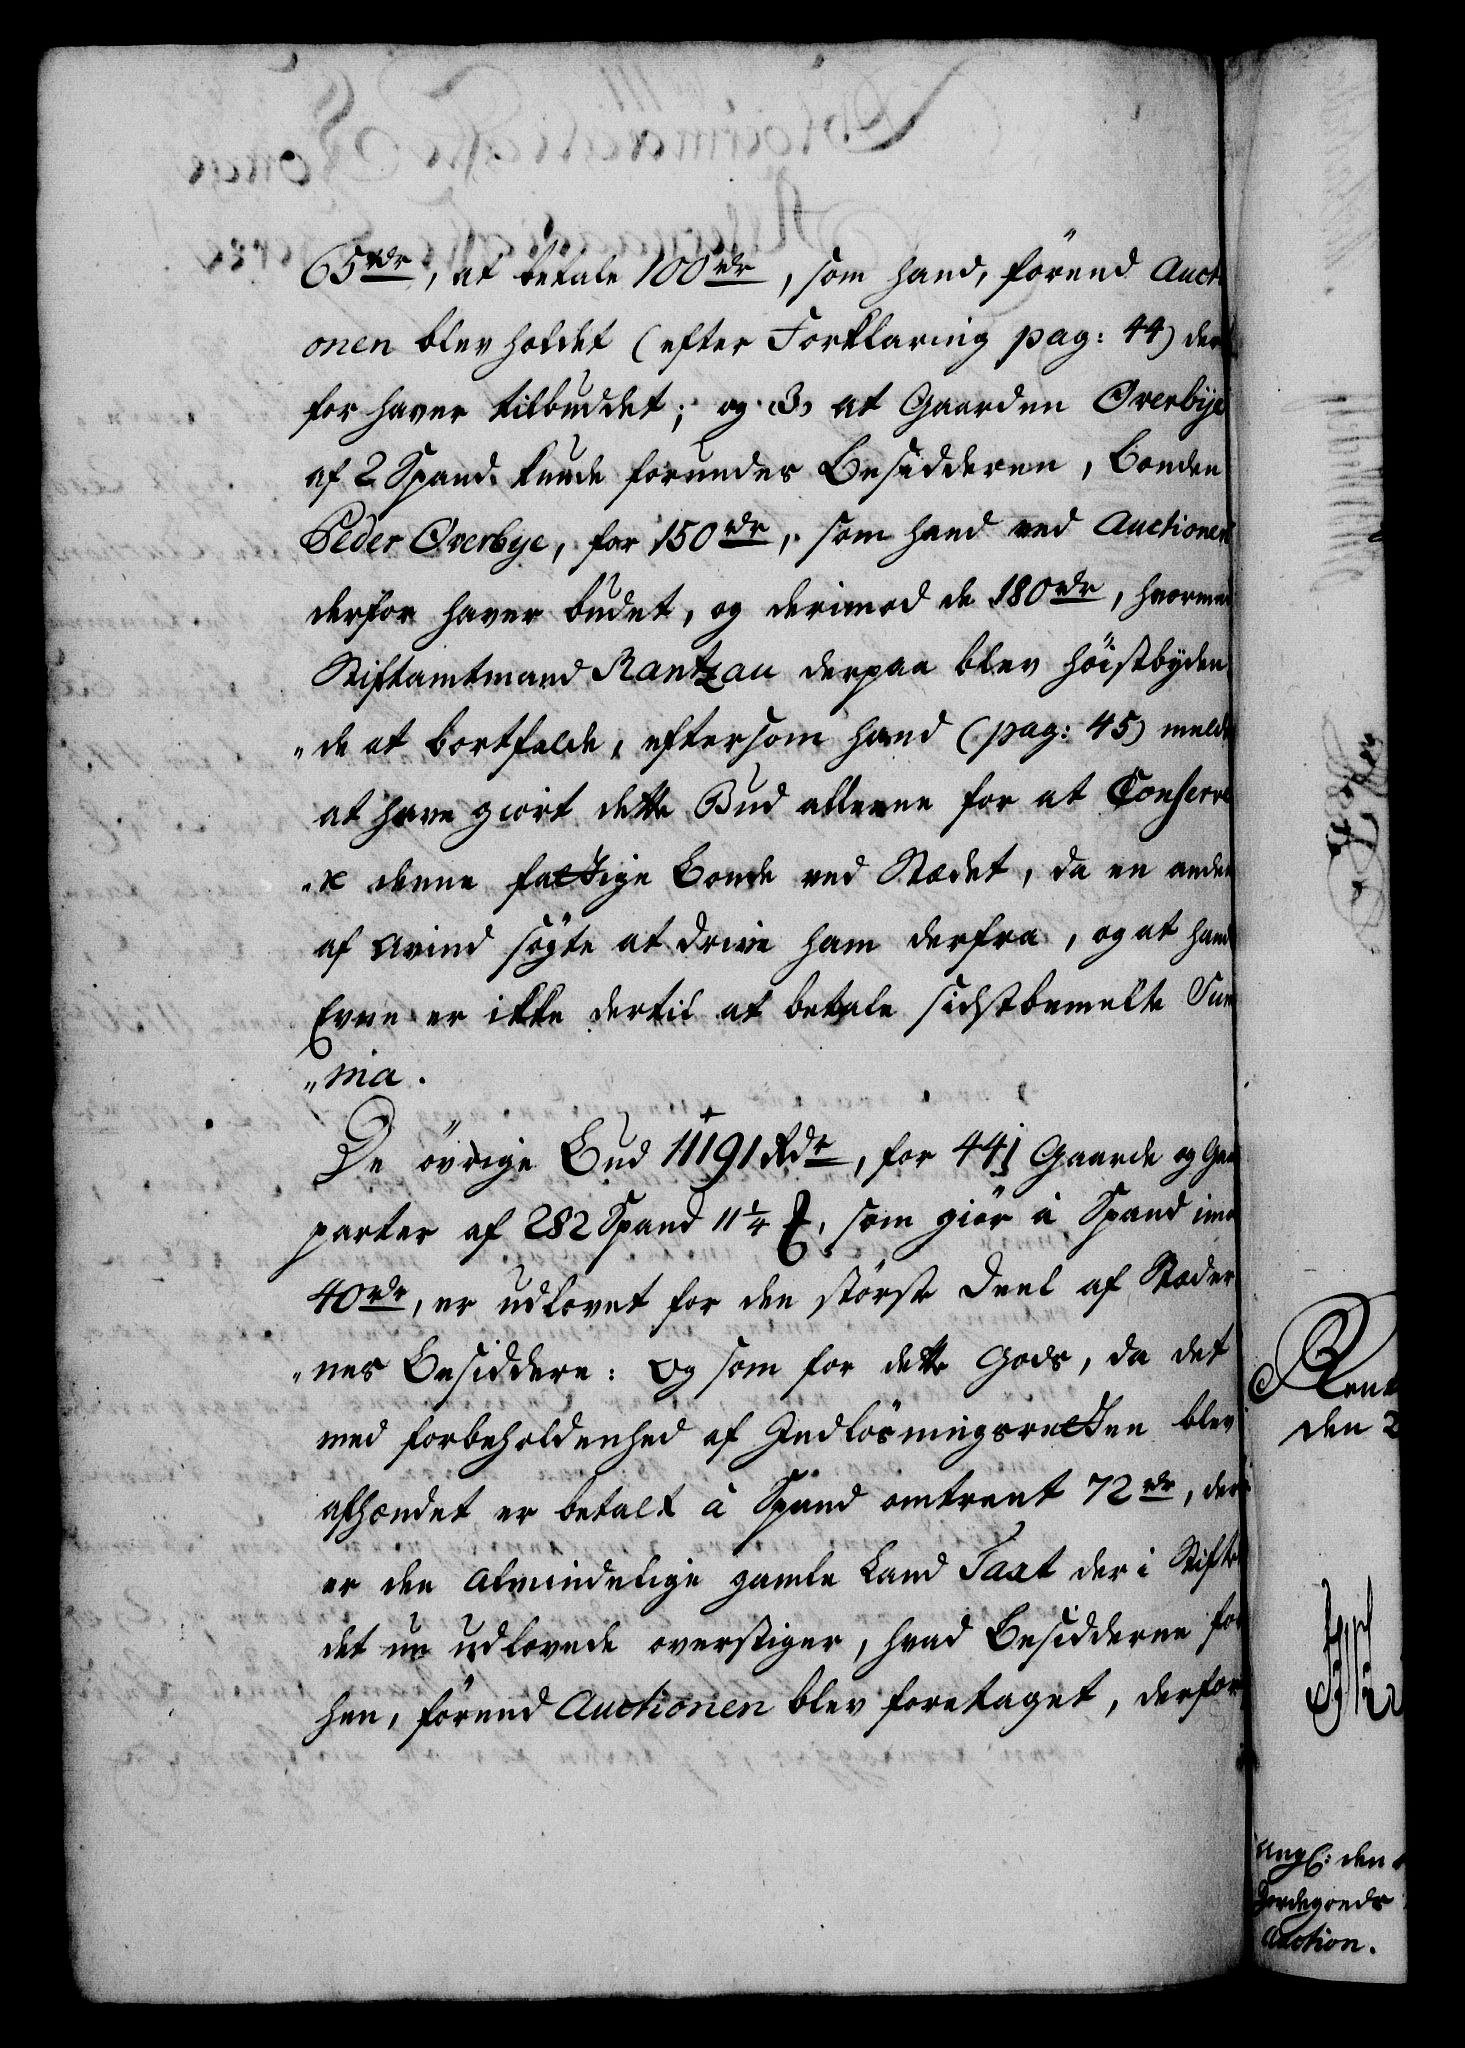 65 rdr, at betale 100 rdr, som hand, förend Aucti
onen blev holdet (efter Forklaring pag: 44) der
for haver tilbuddet; og 3) at Gaarden Øverbye
af 2 Spand kunde forundes Besidderen, Bonden
Peder Øverbye, for 150 rdr, som hand ved Auctionen
derfor haver budet, og derimod de 180 rdr, hvormed
Stiftamtmand Rantzau derpaa blev höistbyden
„de at bortfalde, eftersom hand (pag: 45) melder
at have giort dette Bud alleene for at Conserve
„re denne fattige Bonde ved Stædet, da en anden
af Avind søgte at drive ham derfra, og at hans
Evne er ikke dertil at betale sidstbemelte Sum
„ma.
De övrige Bud 11191 Rdr, for 441 Gaarde og Gaar
parter af 282 Spand 11 1/4, som giør à Spand imod
40 rdr, er udlovet for den störste Deel af Stæder
„nes Besiddere: og som for dette Gods, da det
med forbeholdenhed af Indlösningsretten blev
afhændet er betalt à Spand omtrent 72 rdr, der
er den almindelige gamle Land Taxt der i Stifte
det nu udlovede overstiger, hvad Besidderne for
hen, förend Auctionen blev foretaget, derfor
den 2
Ang: den
Jordegoeds
Auction.